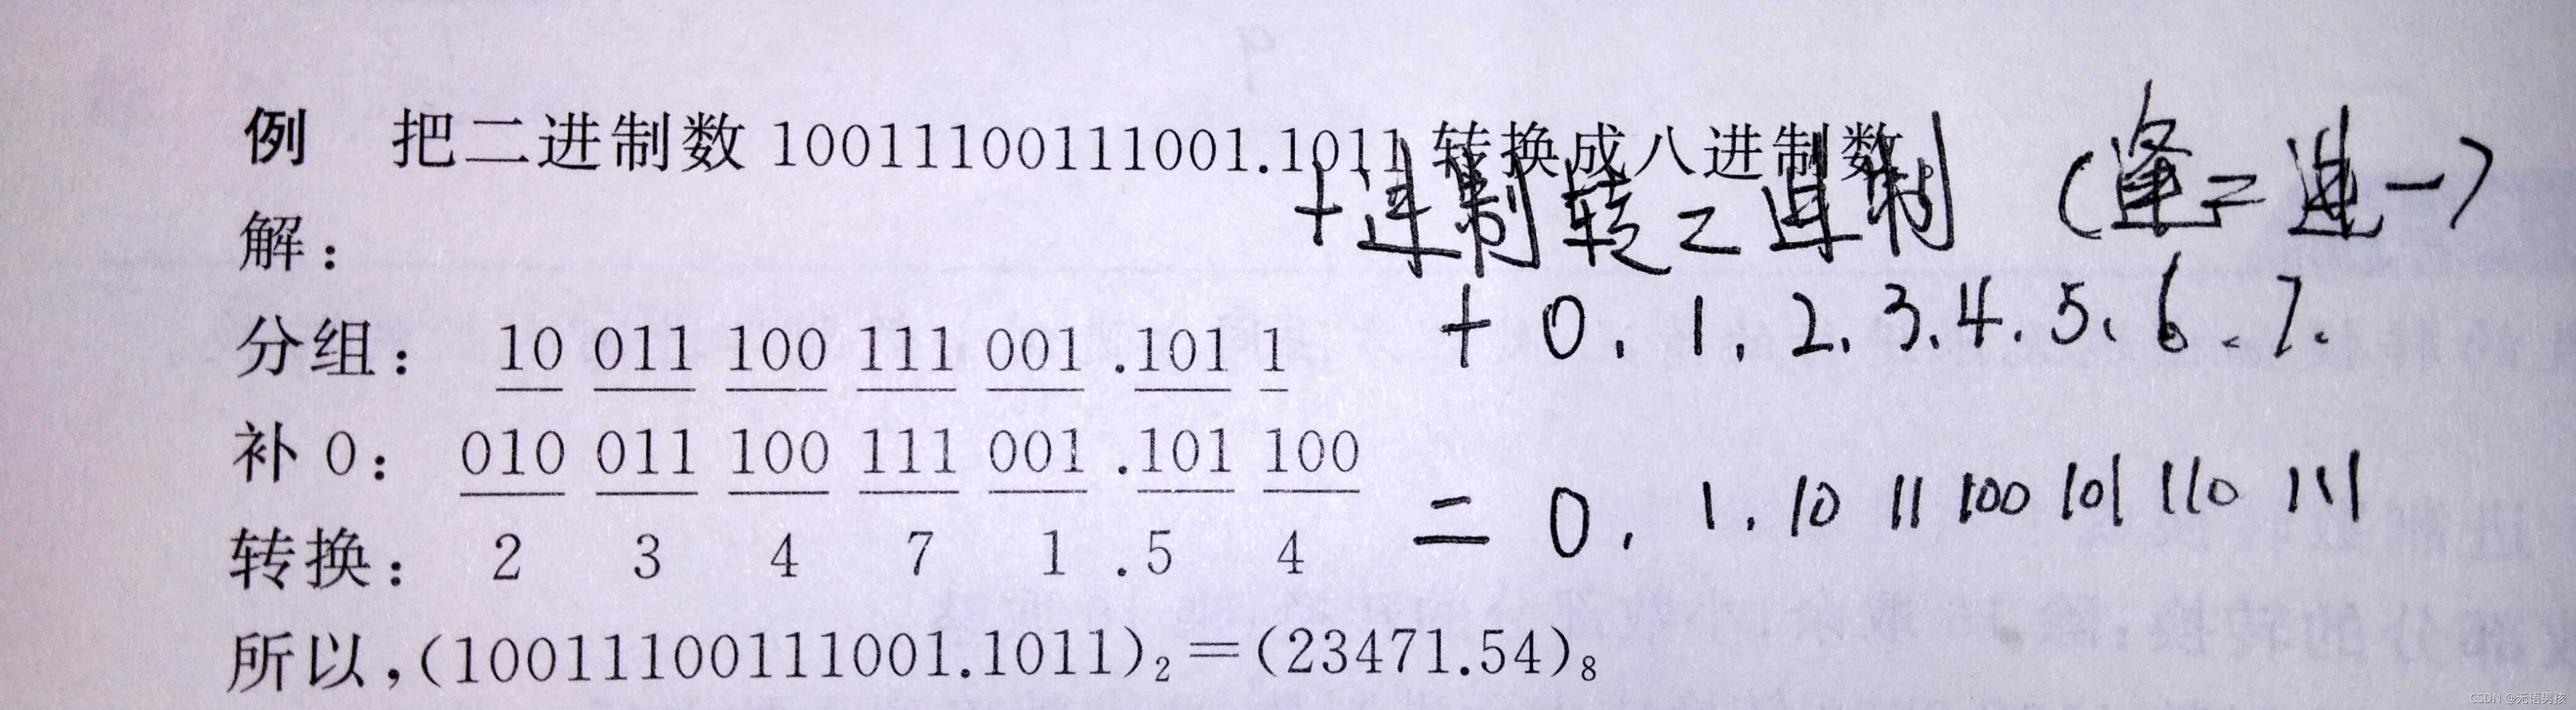 例 把二进制数 10011100111001.1011 转换成八进制数
十进制转二进制 (逢二进一)
解：
十 0. 1. 2. 3. 4. 5、6、7.
分组： 10 011 100 111 001 .101 1
补 0： 010 011 100 111 001 .101 100
二 0. 1. 10 11 100 101 110 111
转换： 2 3 4 7 1 .5 4
所以,(10011100111001.1011)₂＝(23471.54)₈
CSDN @无语男孩